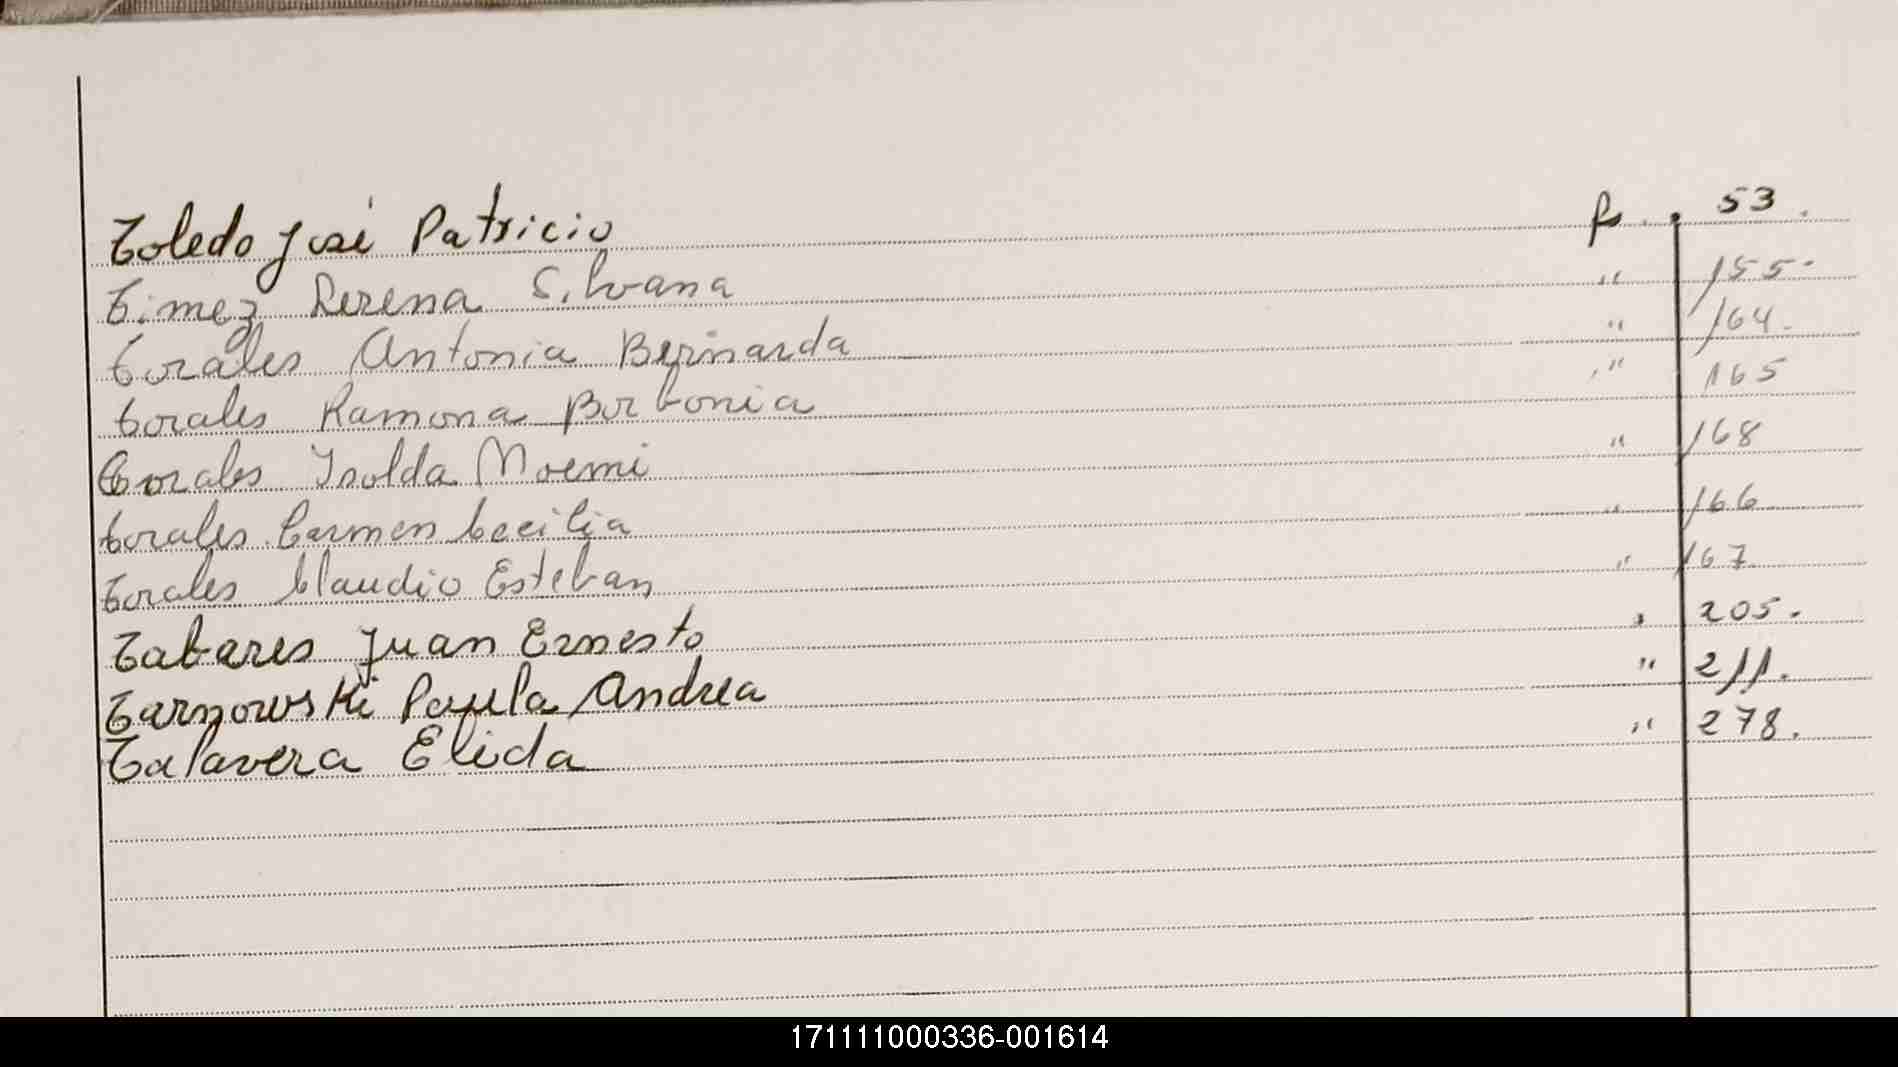 Toledo José Patricio f. 53.
Timez Lerena Silvana " 155.
Torales Antonia Bernarda " 164.
Torales Ramona Borbonia " 165
Torales Isolda Noemi " 168
Torales Carmen Cecilia " 166
Torales Claudio Esteban " 167
Tabares Juan Ernesto " 205.
Tarnowski Paula Andrea " 211.
Talavera Elida " 278.
171111000336-001614